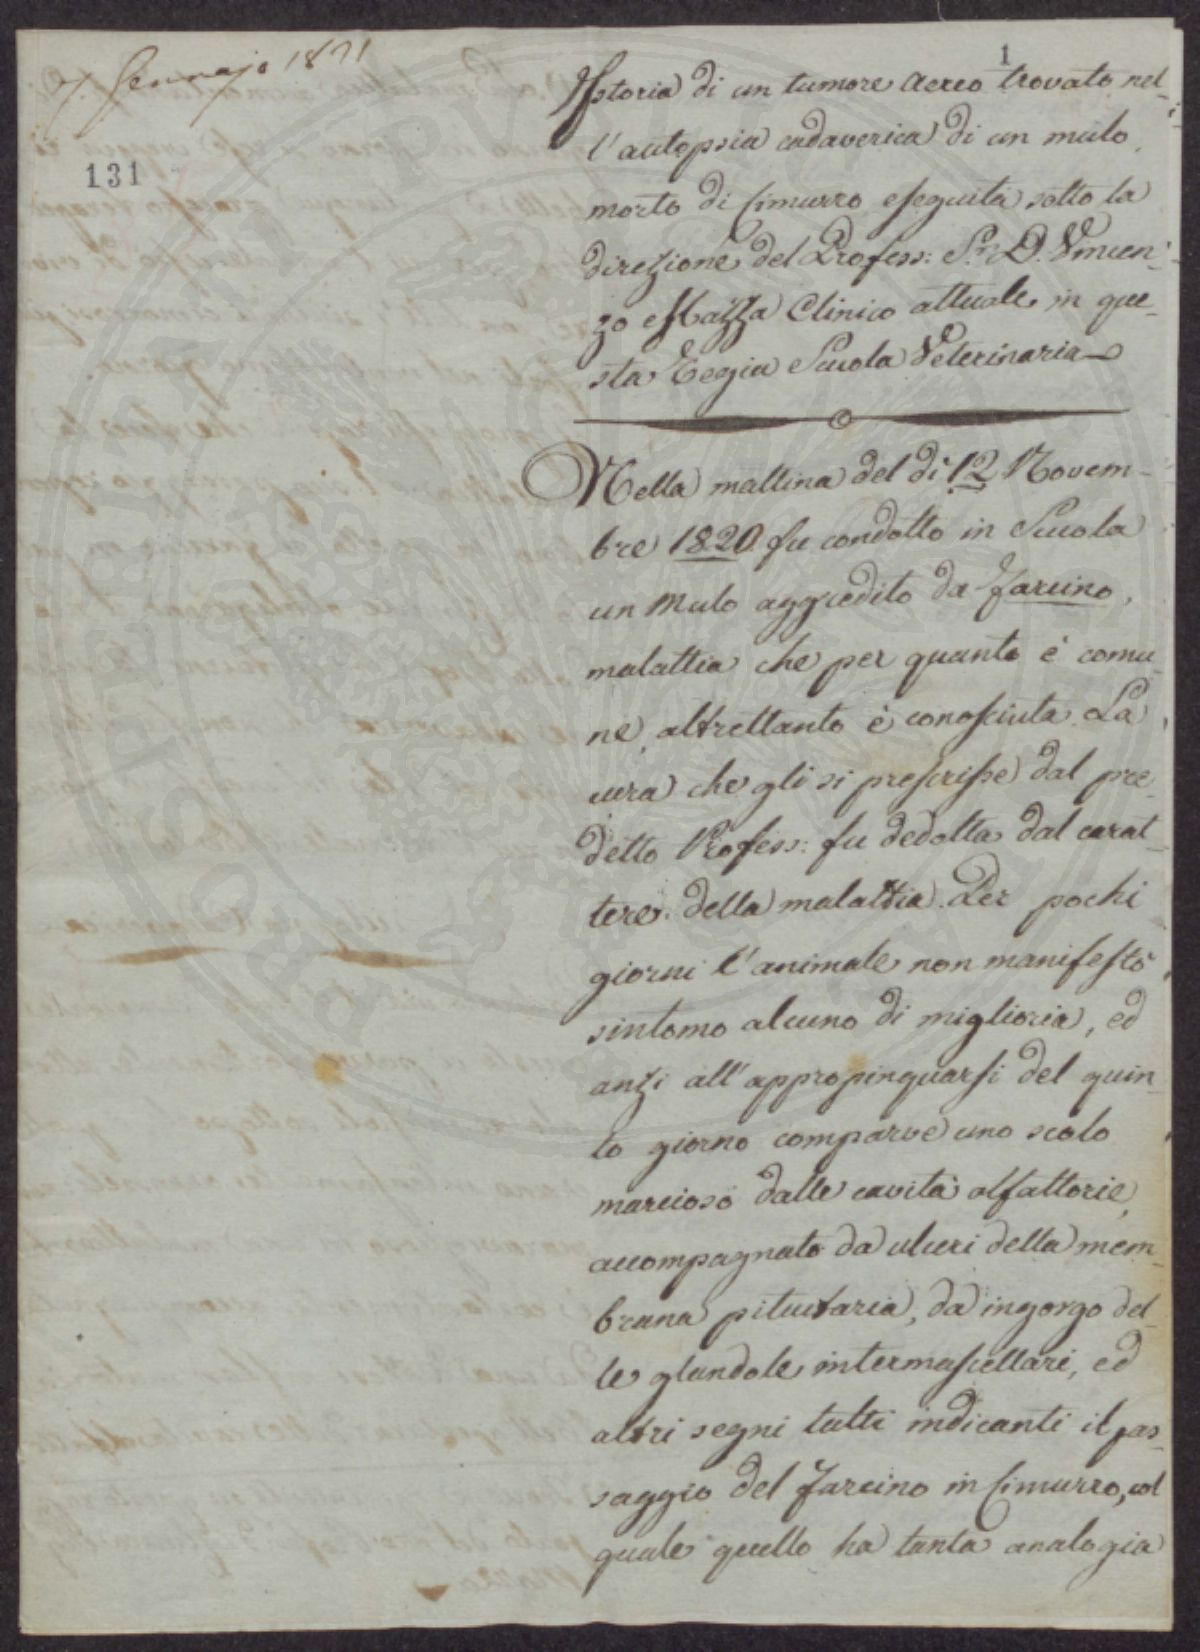 7. Gennajo 1821
131
1
Istoria di un tumore aereo trovato nel-
l'autopsia cadaverica di un mulo
morto di Cimurro eseguita sotto la
direzione del Profess: S.r D. Vincen-
zo Mazza Clinico attuale in que-
sta Regia Scuola Veterinaria
Nella mattina del dì 12 Novem-
bre 1820 fu condotto in Scuola
un Mulo aggredito da Farcino,
malattia che per quanto è comu-
ne, altrettanto è conosciuta. La
cura che gli si prescrisse dal pre-
detto Profess: fu dedotta dal carat-
tere della malattia. Per pochi
giorni l'animale non manifestò
sintomo alcuno di miglioria, ed
anzi all'appropinquarsi del quin-
to giorno comparve uno scolo
marcioso dalle cavità olfattorie,
accompagnato da ulceri della mem-
brana pituitaria, da ingorgo del-
le glandole intermascellari, ed
altri segni tutti indicanti il pas-
saggio del Farcino in Cimurro, col
quale quello ha tanta analogia